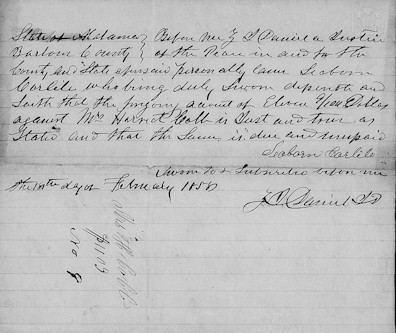 State of Alabama } Before me Z D Daniel a Justice
Barbour County } of the Peace in and for the
County and State aforesaid personally came Seaborn
Carlile who being duly Sworn deposeth and
Saith that the foregoing account of Eleven Dollars
against Mrs Harriet Cobb is Just and true as
Stated and that the Same is due and unpaid
Seaborn Carlile
Sworn to & Subscribed before me
the day of February 1858
Z D Daniel J P
No 9